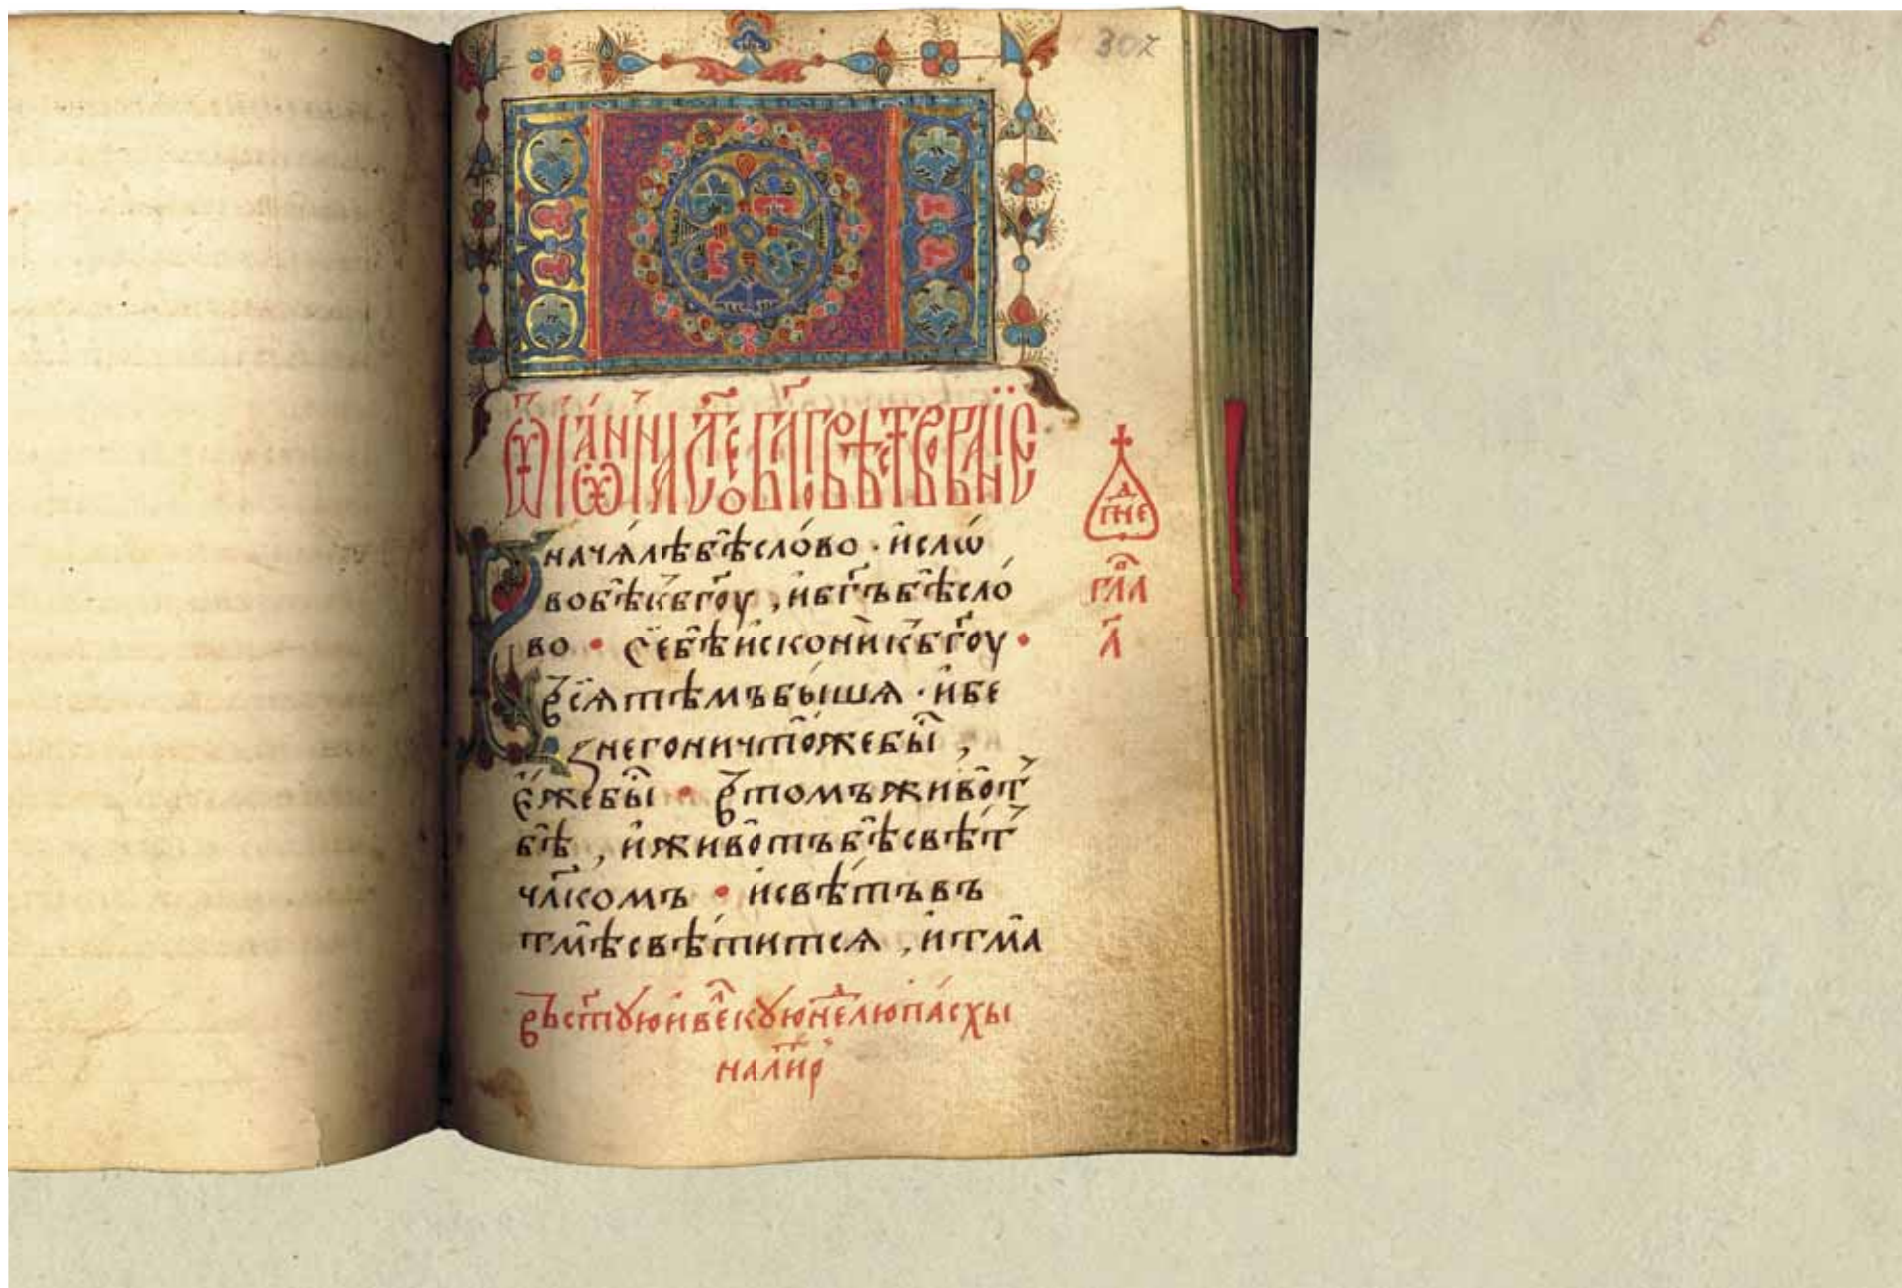 307
ѿ іѡанніа с҃тое бл҃говѣствованіе
В началѣ бѣ слово · и сло
во бѣ къ б҃гоу , и б҃гъ бѣ сло
во • се бѣ искони къ б҃гоу •
всѧ тѣмъ бышѧ · и бе
з него ничтоже бы҇ ,
еже бы҇ • в томъ живот
бѣ , и животъ бѣ свѣт
чл҃комъ • и свѣтъ въ
тмѣ свѣтитсѧ , и тма
въ ст҃ꙋю и велкꙋю не҇д҇лю пасхы
на ли҇т҇р
д
гне
гл҇а
а҃